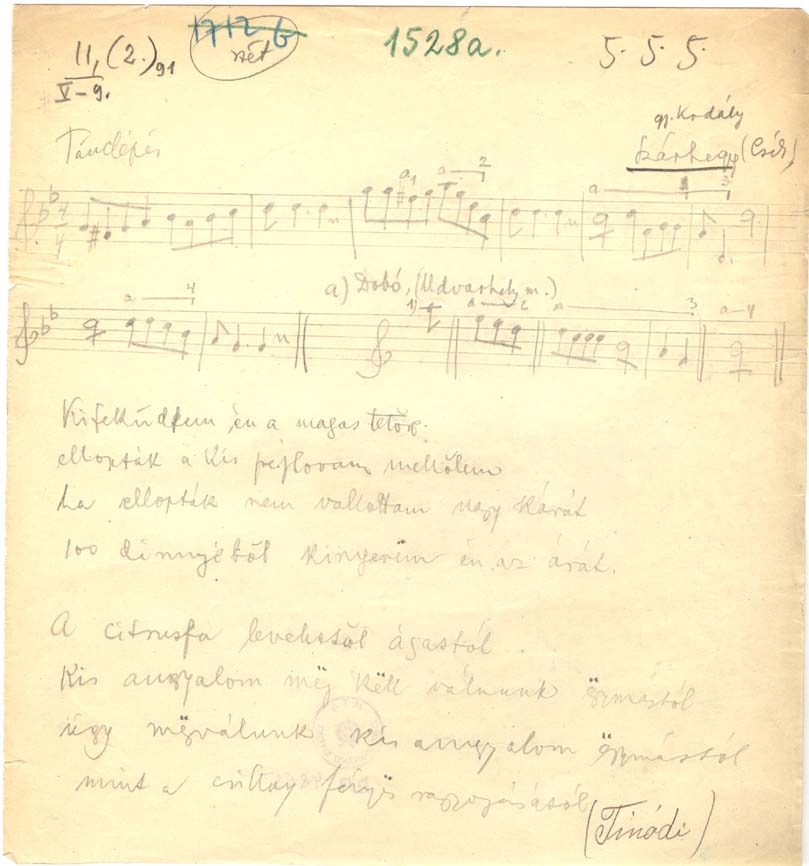 II, (2.)91
V-9.
1712 b
vét
1528a.
5. 5. 5.
gy. Kodály
Szárhegy (Csík)
Tánclépés
a) Dobó, (Udvarhely m.)
Kifeküdtem én a magas tetőre
ellopták a kis pejlovam mellőlem
ha ellopták nem vallottam nagy kárát
100 dinnyéből kinyerëm én az árát.
A citrusfa levelestől ágastól
Kis angyalom mëj këll válnunk ëgymástól
úgy mëgválunk kis angyalom ëgymástól
mint a csillag fényës ragyogásától
(Tinódi)